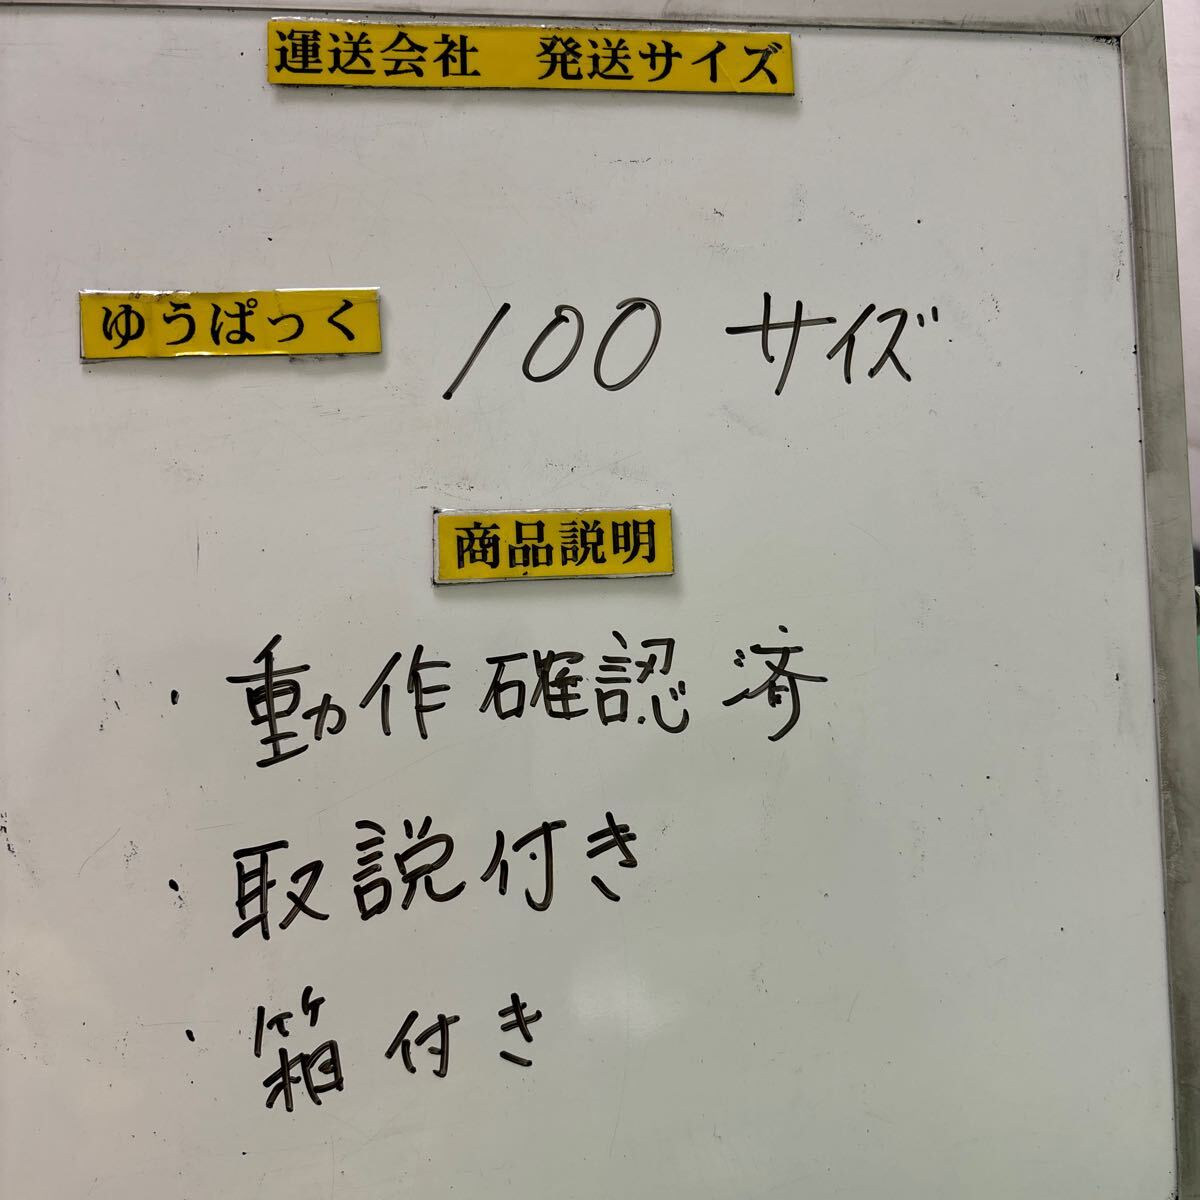 運送会社　発送サイズ
ゆうぱっく 100 サイズ
商品説明
・動作確認済
・取説付き
・箱付き